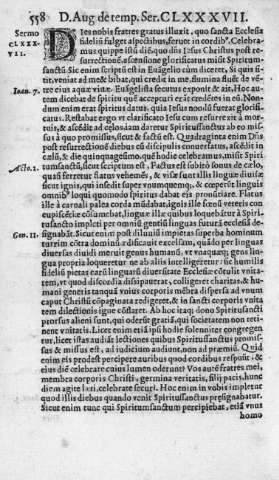 558 D. Aug de temp. Ser. CLXXXVII.
Sermo
CLXXX
VII.
DIes nobis fratres gratus illuxit, quo sancta Ecclesia
fidelium fulget aspectibus, feruet in cordib9. Celebra-
mus quippe istũ diẽ, quo dñs Iesus Christus post re-
surrectionẽ, ascensione glorificatus misit Spiritum-
sanctũ. Sic enim scriptũ est in Euãgelio eum dicere, Si quis si-
tit, veniat ad me & bibat, qui credit in me, flumina fluẽt de vẽ-
Ioan. 7.
tre eius aquæ viuæ. Euãgelista secutus exponit & ait, Hoc au-
tem dicebat de spiritu quẽ accepturi erãt credẽtes in eũ. Non-
dum enim erat spiritus datus, quia Iesus nondũ fuerat glorifi-
catus. Restabat ergo vt clarificato Iesu cum resurrexit à mor-
tuis, & ascẽdit ad cœlos, iam daretur Spiritussanctus ab eo mis-
sus à quo promissus, sicut & factũ est. Quadraginta enim Dñs
post resurrectionẽ diebus cũ discipulis conuersatus, ascẽdit in
cælũ, & die quinquagesimo, quẽ hodie celebramus, misit Spiri-
Acto. 2.
tumsanctũ, sicut scriptum est, Factus est subitò sonus de cælo,
quasi ferretur flatus vehemẽs, & visæ sunt illis linguæ diuisæ
sicut ignis, qui insedit super vnumquemq;, & cœperũt linguis
omnib9 loqui quomodo spiritus dabat eis pronũtiare. Flatus
ille à carnali palea corda mũdabat, ignis ille fœnũ veteris con-
cupiscẽtiæ cõsumebat, linguæ illæ quibus loquebãtur à Spiri-
tusancto impleti per omniũ gentiũ linguas futurã ecclesiã de-
signabãt. Sicut enim post diluuiũ impietas superba hominum
Gen. 11.
turrim cõtra dominũ ædificauit excelsam, quãdo per linguas
diuersas diuidi meruit genus humanũ, vt vnaquæq; gens lin-
gua propria loqueretur ne ab aliis intelligeretur: sic humilis
fidelium pietas earũ linguarũ diuersitate Ecclesiæ cõtulit vnita-
tem, vt quod discordia dissipauerat, colligeret charitas, & hu-
mani generis tanquã vnius corporis mẽbra dispersa ad vnum
caput Christũ cõpaginata redigeret, & in sancti corporis vnita
tem dilectionis igne cõflaret. Ab hoc itaq; dono Spiritussancti
prorsus alieni sunt, qui oderũt gratiã pacis, qui societatem non reti-
nent vnitatis. Licet enim etiã ipsi hodie solenniter congregen
tur, licet istas audiãt lectiones quibus Spiritussanctus promis-
sus & missus est, ad iudicium audiunt, non ad præmiũ. Quid
enim eis prodest percipere auribus quod cordibus respuũt, &
eius diẽ celebrare cuius lumen oderunt? Vos aũt fratres mei,
membra corporis Christi, germina veritatis, filij pacis, hunc
diem agite læti, celebrate securi. Hoc enim in vobis impletur
quod illis diebus quando venit Spiritussanctus præsignabatur.
Sicut enim tunc qui Spiritumsanctum percipiebat, etiã vnus
homo